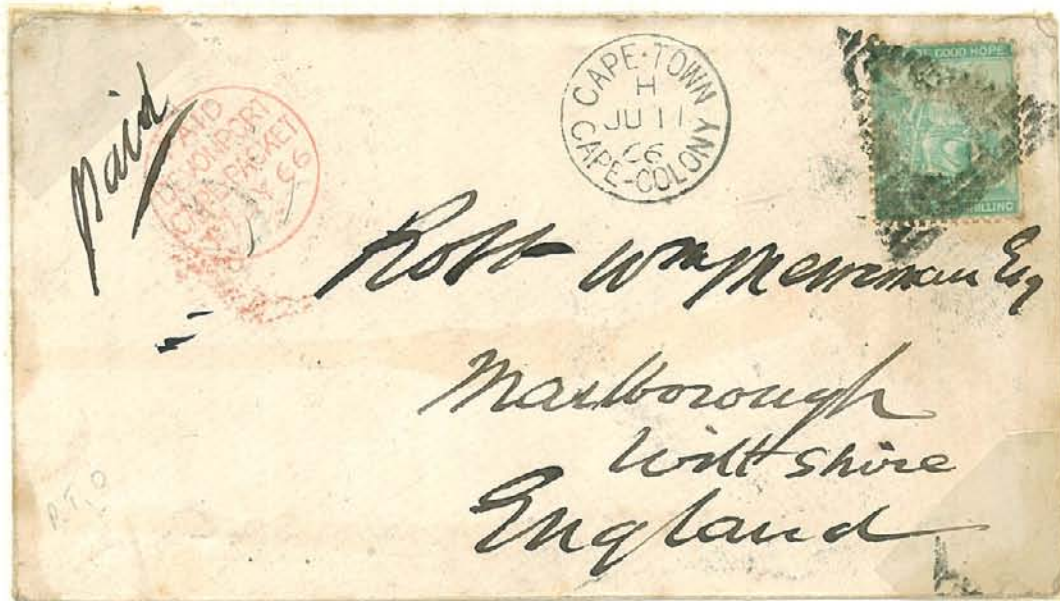 paid
PAID
DEVONPORT
PACKET
66
CAPE-TOWN
H
JU 11
66
CAPE-COLONY
OF GOOD HOPE
SHILLING
Robt Wm Merriman Esq
Marlborough
Wiltshire
England
P.T.O